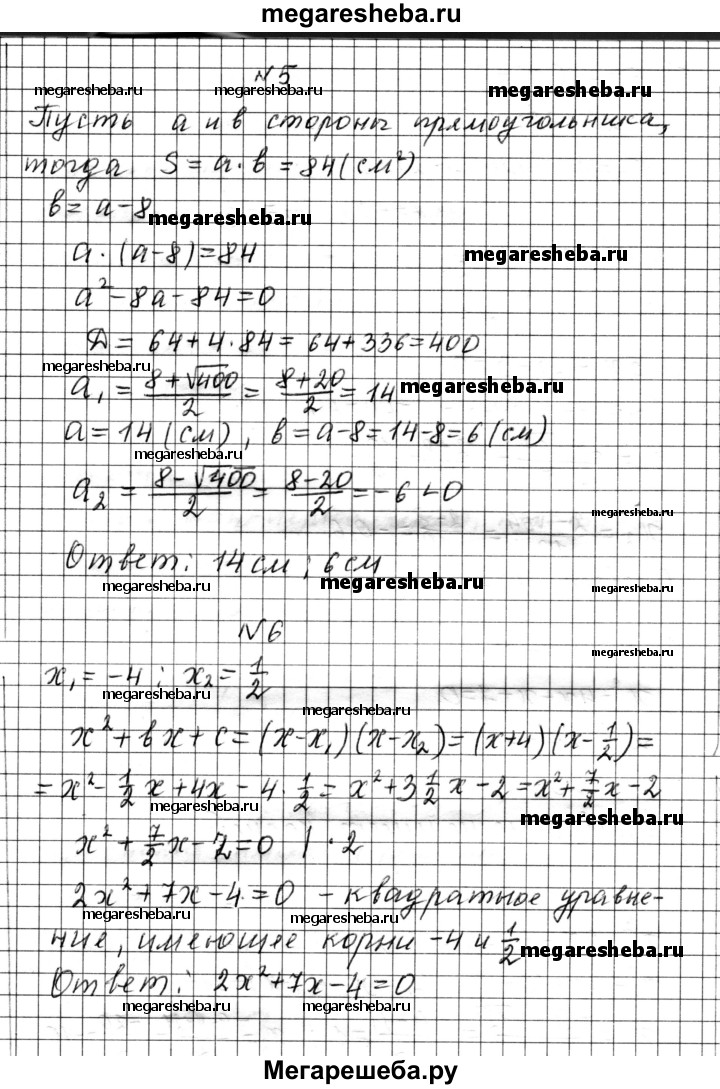 megaresheba.ru
№5
megaresheba.ru megaresheba.ru megaresheba.ru
Пусть а и в стороны прямоугольника,
тогда S = a · в = 84 (см²)
в = a - 8
megaresheba.ru
a · (a - 8) = 84
megaresheba.ru
a² - 8a - 84 = 0
Д = 64 + 4 · 84 = 64 + 336 = 400
megaresheba.ru
a₁ = (8 + √400)/2 = (8 + 20)/2 = 14
megaresheba.ru
a = 14 (см), в = a - 8 = 14 - 8 = 6 (см)
megaresheba.ru
a₂ = (8 - √400)/2 = (8 - 20)/2 = -6 < 0
megaresheba.ru
Ответ: 14 см; 6 см
megaresheba.ru megaresheba.ru
№6
megaresheba.ru
x₁ = -4; x₂ = 1/2
megaresheba.ru
megaresheba.ru
x² + вx + c = (x - x₁)(x - x₂) = (x + 4)(x - 1/2) =
= x² - 1/2 x + 4x - 4 · 1/2 = x² + 3 1/2 x - 2 = x² + 7/2 x - 2
megaresheba.ru
megaresheba.ru
x² + 7/2 x - 2 = 0 | · 2
2x² + 7x - 4 = 0 - квадратное уравне-
megaresheba.ru megaresheba.ru
ние, имеющее корни -4 и 1/2
megaresheba.ru
Ответ: 2x² + 7x - 4 = 0
megaresheba.ru megaresheba.ru
Мегарешеба.ру